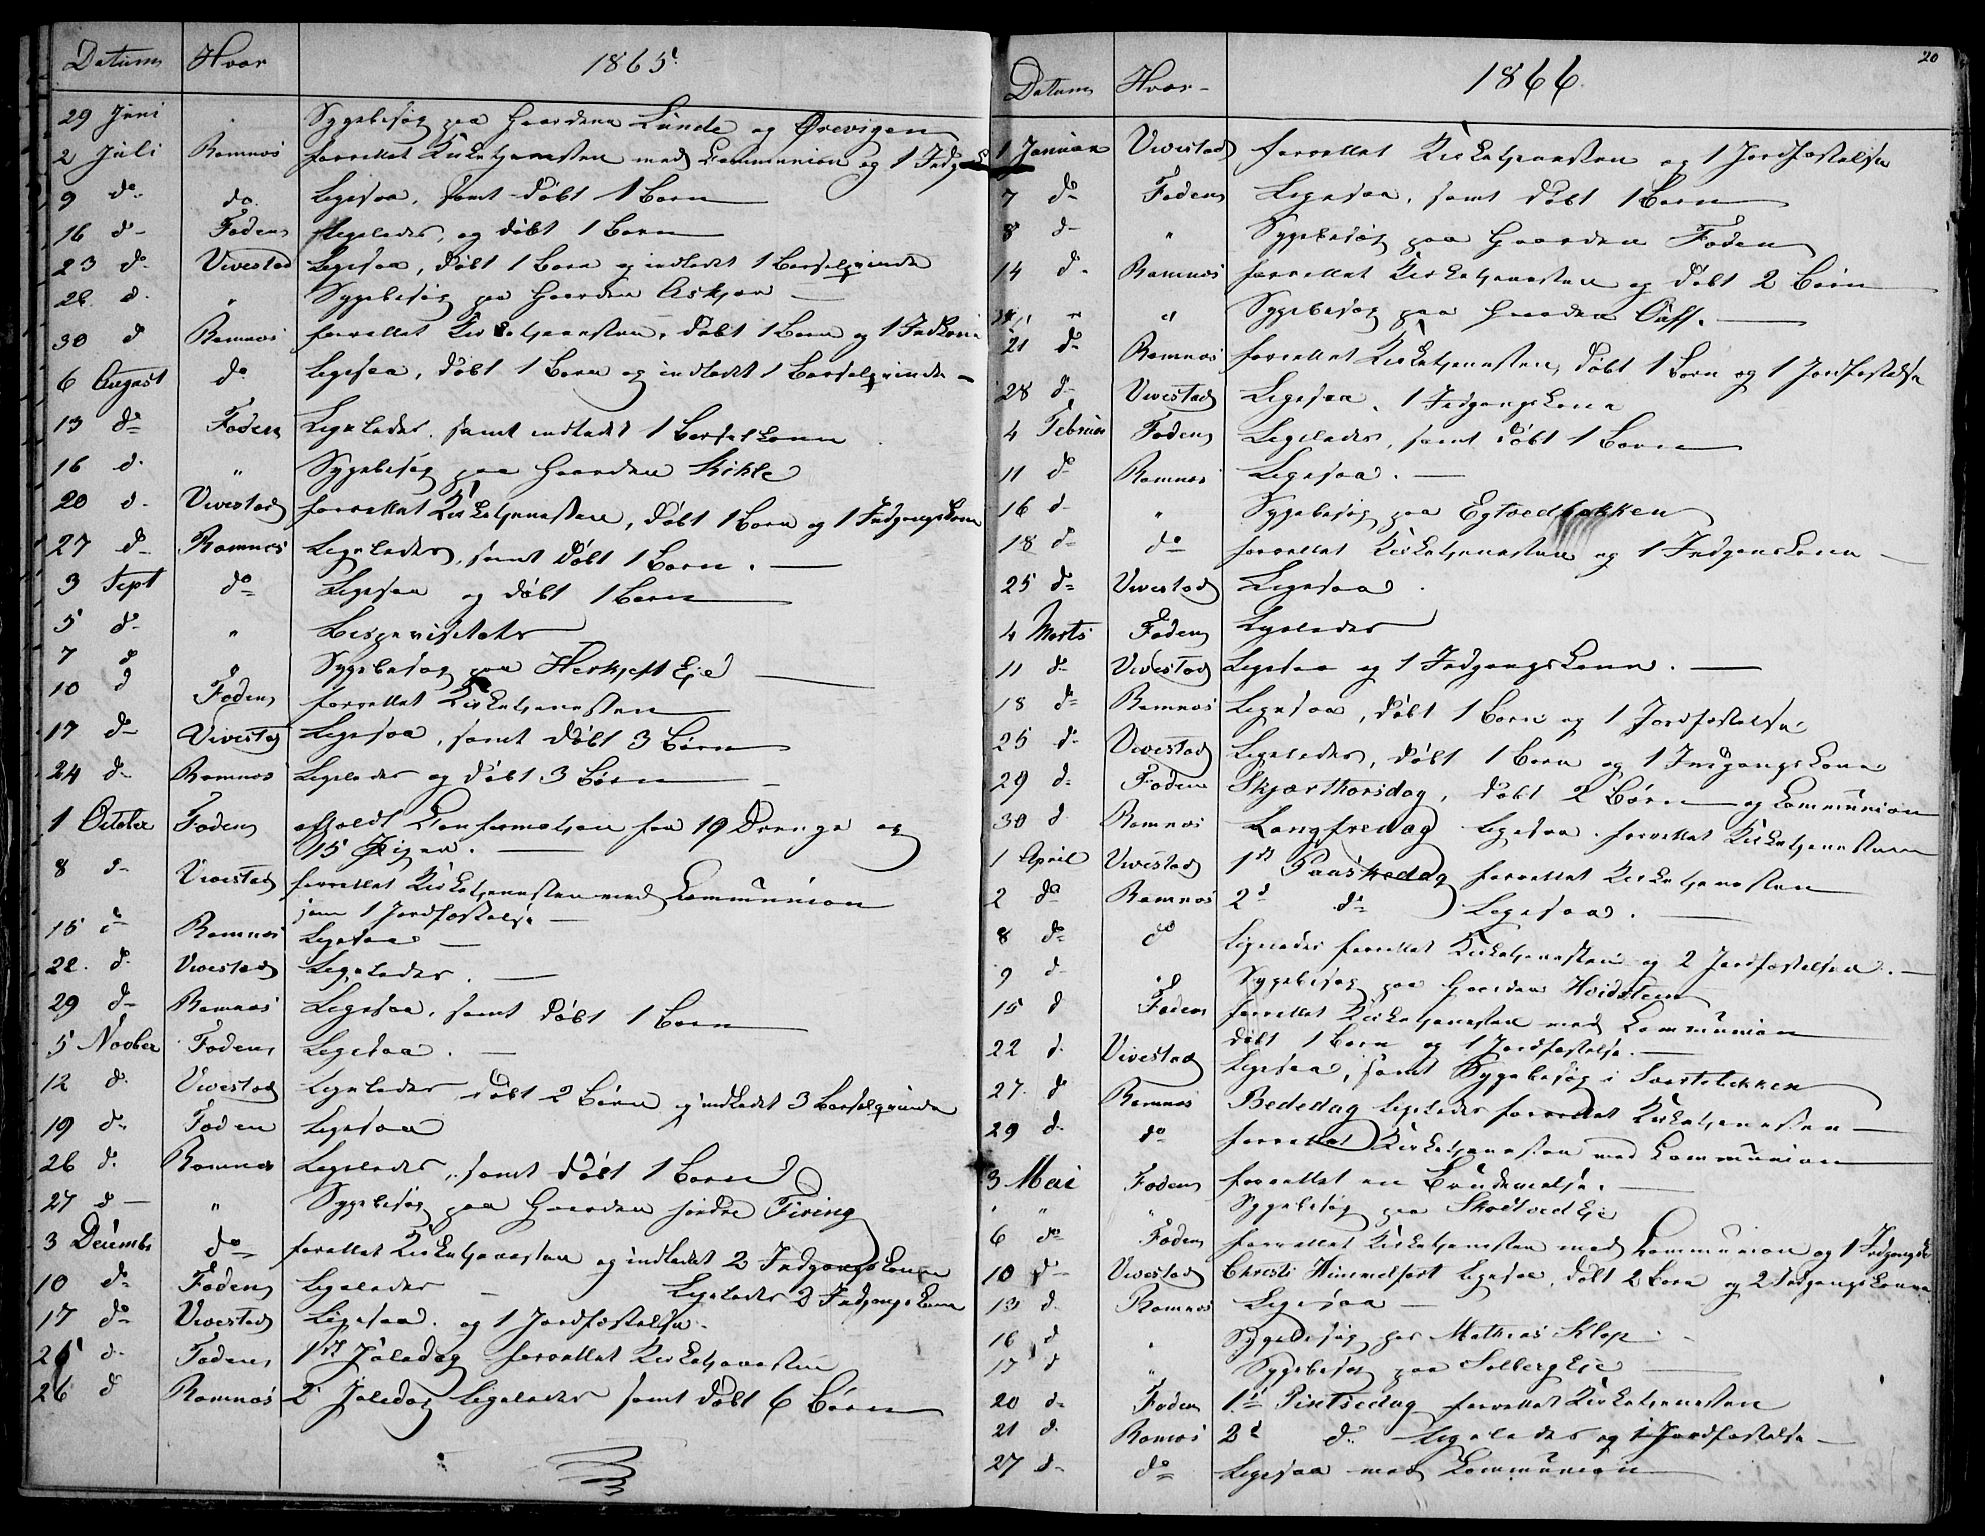 Datum Hvor 1865.
29 Juni Sygebesøg paa Gaardene Linde og Ørevigen
2 Juli Ramnes forrettet Kirketjenesten med Communion og 1
9 do do. Ligesaa, samt døbt 1 Barn
16 d Foden Ligeledes, og døbt 1 Barn
23 d Vivestad Ligesaa, døbt 1 Barn og indledet 1 Barselqvinde
d. " Sygebesøg paa Gaarden Askjær
30 d Ramnes forrettet Kirketjenesten, døbt 1 Barn og 1
6 August do Ligesaa, døbt 1 Barn og indledet 1 Barselqvinde
13 do Foden Ligeledes, samt indledt 1 Barselkone
16 d. " Sygebesøg paa Gaarden Kihle
20 d. Vivestad forrettet Kirketjenesten, døbt 1 Barn og 1 Indgangskone
27 d Ramnes Ligeledes, samt døbt 1 Barn.
3 Sept do Ligesaa og døbt 1 Barn
5 d " Bispevisitats
7 d Sygebesøg paa Eje
10 d Foden forrettet Kirketjenesten
17 d Vivestad Ligesaa, samt døbt 3 Børn
24 d Ramnes Ligeledes og døbt 3 Børn
1 October Foden afholdt Confirmation for 19 Drenge og
15 Piger.
8 d Vivestad forrettet Kirketjenesten med Communion
samt 1 Jordfæstelse
15 d Ramnes Ligesaa
22. d. Vivestad Ligeledes.
29 d Ramnes Ligesaa, samt døbt 1 Barn
5 Novber Foden Ligesaa.
12 d. Vivestad Ligeledes døbt 2 Børn og indledet 3 Barselqvinder
19 d Foden Ligesaa
26 d. Ramnes Ligeledes, samt døbt 1 Barn
27 d " Sygebesøg paa Gaarden søndre Firing
3 Decembr do forrettet Kirketjenesten og indledet 2 Indgangskoner
10 do Foden Ligeledes Ligeledes 2 Indgangskoner
17 do Vivestad Ligesaa. og 1 Jordfæstelse.
25 d. Foden 1ste Juledag forrettet Kirketjenesten
26 d Ramnes 2 Juledag Ligeledes samt døbt 6 Børn
20
Datum Hvor 1866.
1 Januar Vivestad forrettet Kirketjenesten og 1 Jordfæstelse
7 do Foden Ligesaa, samt døbt 1 Barn
8 d " Sygebesøg paa Gaarden Foden
14 d. Ramnes forrettet Kirketjenesten og døbt 2 Børn
" " Sygebesøg paa Gaarden
21 d Ramnes forrettet Kirketjenesten, døbt 1 Barn og 1 Jordfæstelse
28 d Vivestad Ligesaa, 1 Indgangskone
4 Februar Foden Ligeledes, samt døbt 1 Barn
11 do Ramnes Ligesaa.
16 d " Sygebesøg paa Egtvedbakken
18 d do forrettet Kirketjenesten og 1 Indgangskone
25 d Vivestad Ligesaa.
4 Marts Foden Ligeledes
11 d Vivestad Ligesaa og 1 Indgangskone.
18 d Ramnes Ligesaa, døbt 1 Barn og 1 Jordfæstelse
25 d Vivestad Ligeledes, døbt 1 Barn og 1 Indgangskone
29 d. Foden Skjærthorsdag, døbt 2 Børn og Communion
30 d Ramnes Langfredag Ligesaa forrettet Kirketjenesten
1 April Vivestad 1st Paaskedag forrettet Kirketjenesten
2 do Ramnes 2d do Ligesaa.
8 do do Ligeledes forrettet Kirketjenesten og 2 Jordfæstelser.
9 d " Sygebesøg paa Gaarden Hvidsteen
15 d Foden forrettet Kirketjenesten med Communion
døbt 1 Barn og 1 Jordfæstelse.
22 d. Vivestad Ligesaa, samt Sygebesøg i
27. d Ramnes Bededag Ligeledes forrettet Kirketjenesten
29 d. do forrettet Kirketjenesten med Communion
3 Mai Foden forrettet en Brudevielse.
" " " Sygebesøg paa Eje
6 do Foden forrettet Kirketjenesten med Communion og 1
10 d Vivestad Christi Himmelfart Ligesaa, døbt 2 Børn og 2 Indgangskoner
13 d. Ramnes Ligesaa
16 d " Sygebesøg hos Mathias Klop
17 d " Sygebesøg paa Solberg Eje
20 d Foden 1st Pintsedag forrettet Kirketjenesten
21 d. Ramnes 2d d. Ligeledes og 1 Jordfæstelse
27 d do Ligesaa med Communion